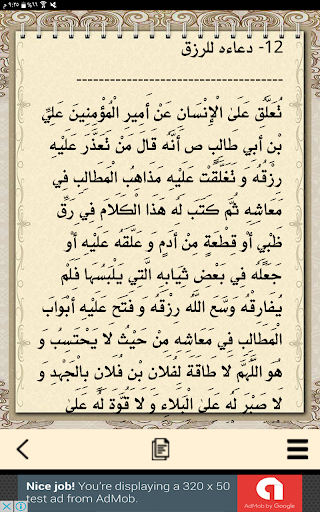 ٩:٢٥ م
٦٦٪
12- دعاءه للرزق
--------------------------------
تُعَلَّقُ عَلَى الْإِنْسَانِ عَنْ أَمِيرِ الْمُؤْمِنِينَ عَلِيِّ
بْنِ أَبِي طَالِبٍ ص أَنَّهُ قَالَ مَنْ تَعَذَّرَ عَلَيْهِ
رِزْقُهُ وَ تَغَلَّقَتْ عَلَيْهِ مَذَاهِبُ الْمَطَالِبِ فِي
مَعَاشِهِ ثُمَّ كَتَبَ لَهُ هَذَا الْكَلَامَ فِي رَقِّ
ظَبْيٍ أَوْ قِطْعَةٍ مِنْ أَدَمٍ وَ عَلَّقَهُ عَلَيْهِ أَوْ
جَعَلَهُ فِي بَعْضِ ثِيَابِهِ الَّتِي يَلْبَسُهَا فَلَمْ
يُفَارِقْهُ وَسَّعَ اللَّهُ رِزْقَهُ وَ فَتَحَ عَلَيْهِ أَبْوَابَ
الْمَطَالِبِ فِي مَعَاشِهِ مِنْ حَيْثُ لَا يَحْتَسِبُ وَ
هُوَ اللَّهُمَّ لَا طَاقَةَ لِفُلَانِ بْنِ فُلَانٍ بِالْجَهْدِ وَ
لَا صَبْرَ لَهُ عَلَى الْبَلَاءِ وَ لَا قُوَّةَ لَهُ عَلَى
Nice job! You're displaying a 320 x 50
test ad from AdMob.
AdMob by Google